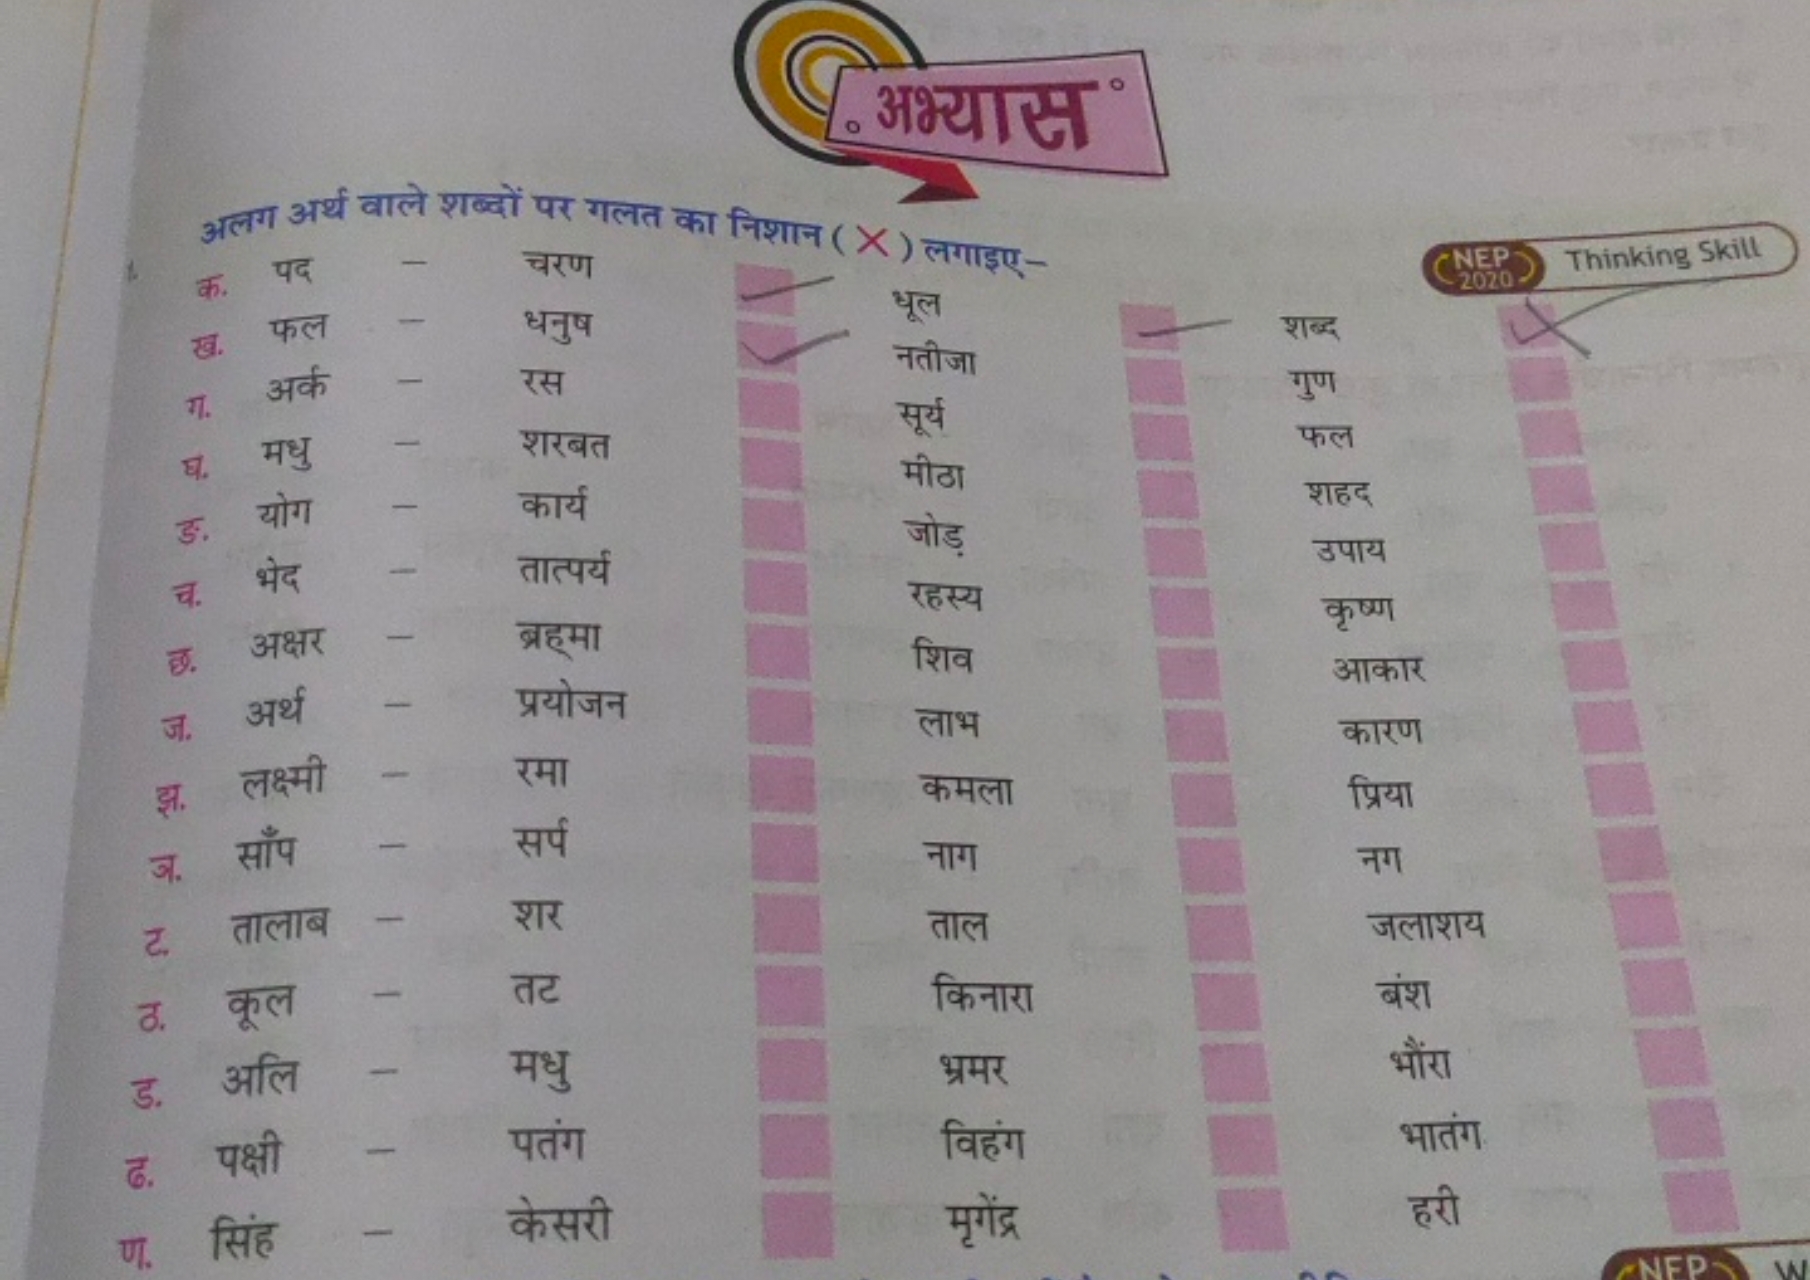 अभ्यास
अलग अर्थ वाले शब्दों पर गलत का निशान (X) लगाइए-
NEP 2020 Thinking Skill
1.
क. पद - चरण धूल शब्द
ख. फल - धनुष नतीजा गुण
ग. अर्क - रस सूर्य फल
घ. मधु - शरबत मीठा शहद
ङ. योग - कार्य जोड़ उपाय
च. भेद - तात्पर्य रहस्य कृष्ण
छ. अक्षर - ब्रह्मा शिव आकार
ज. अर्थ - प्रयोजन लाभ कारण
झ. लक्ष्मी - रमा कमला प्रिया
ञ. साँप - सर्प नाग नग
ट. तालाब - शर ताल जलाशय
ठ. कूल - तट किनारा बंश
ड. अलि - मधु भ्रमर भौंरा
ढ. पक्षी - पतंग विहंग भातंग
ण. सिंह - केसरी मृगेंद्र हरी
NEP W